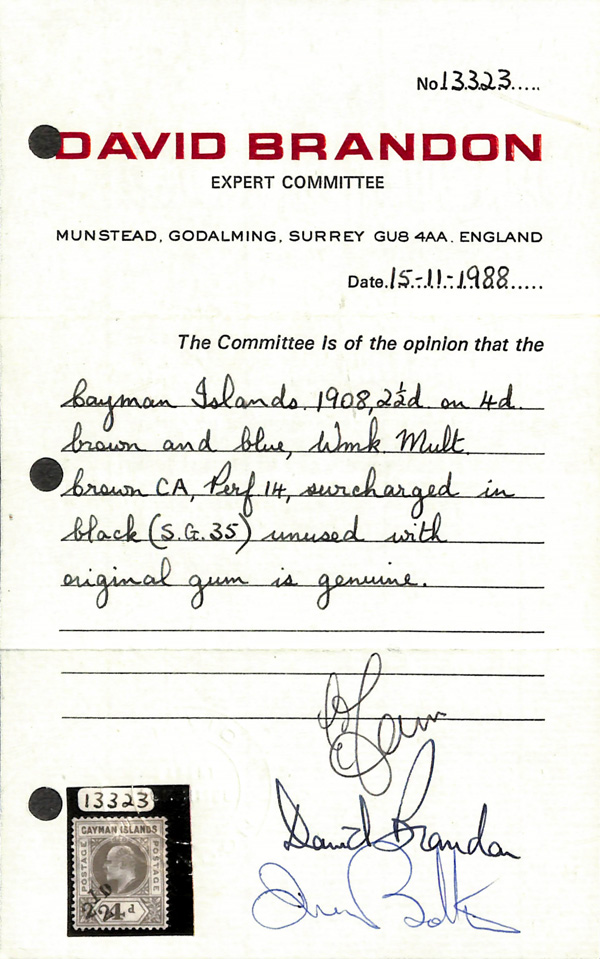 No 13323.....
DAVID BRANDON
EXPERT COMMITTEE
MUNSTEAD, GODALMING, SURREY GU8 4AA. ENGLAND
Date. 15-11-1988.....
The Committee is of the opinion that the
Cayman Islands. 1908, 2½d. on 4d.
brown and blue, Wmk Mult.
Crown CA, Perf 14, surcharged in
black (S.G. 35) unused with
original gum is genuine.
David Brandon
13323
CAYMAN ISLANDS
POSTAGE
POSTAGE